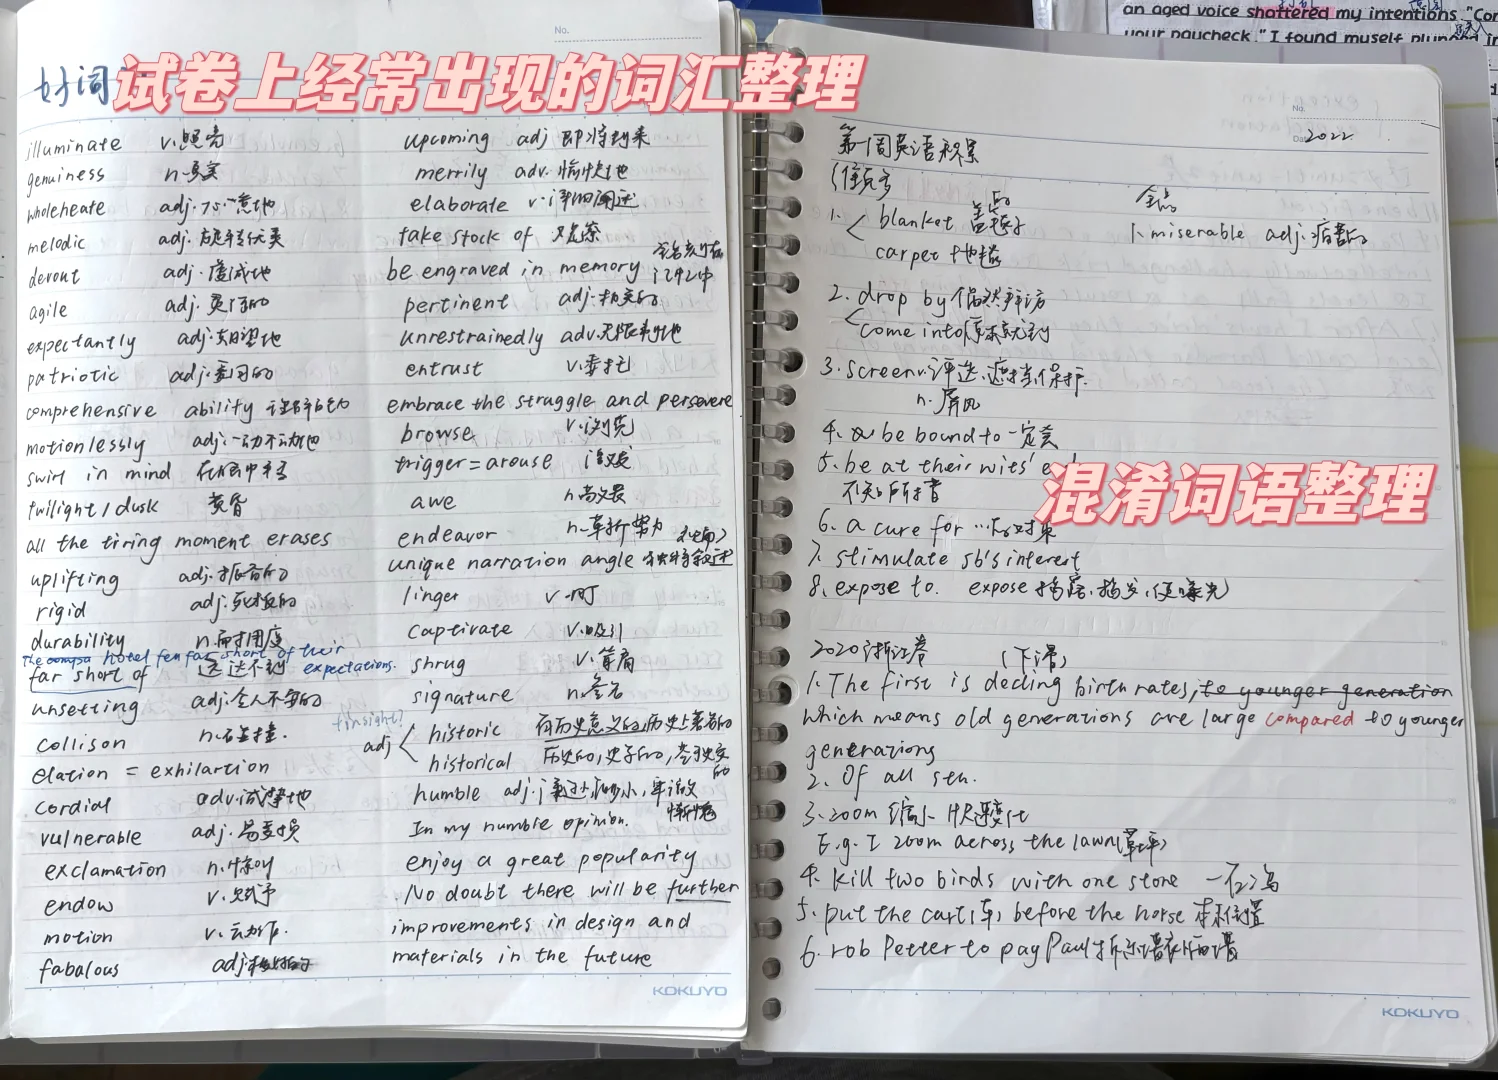 an aged voice shattered my intentions. "Cor
your paycheck." I found myself plunged in
No.
好词
试卷上经常出现的词汇整理
illuminate v.照亮
genuiness n.真实
wholeheate adj.一心一意地
melodic adj.旋律优美
devout adj.虔诚地
agile adj.灵活的
expectantly adj.期望地
patriotic adj.爱国的
comprehensive ability 理解能力
motionlessly adj.一动不动地
swirl in mind 在脑中
twilight/dusk 黄昏
all the tiring moment erases
uplifting adj.振奋的
rigid adj.死板的
durability n.耐用度
The oompsa hotel fen far short of their
far short of 远达不到 expectations.
unsetting adj.令人不安的
collison n.碰撞.
elation = exhilartion
cordial adv.诚挚地
vulnerable adj.易受损
exclamation n.惊叫
endow v.赋予
motion v.动作.
fabalous adj.
upcoming adj 即将到来
merrily adv.愉快地
elaborate v.详细阐述
take stock of 观察
be engraved in memory
记忆中
pertinent adj.相关的
unrestrainedly adv.无限制地
entrust v.委托
embrace the struggle and persevere
browse v.浏览
trigger=arouse 激发
awe n.敬畏
endeavor n.努力
unique narration angle 独特叙述
linger v.
captivate v.吸引
shrug v.耸肩
signature n.签名
+insight?
adj historic 有历史意义的,历史上著名的
historical 历史的,史学的,基于史实的
humble adj.谦逊,渺小,卑微
In my humble opinion.
enjoy a great popularity
No doubt there will be further
improvements in design and
materials in the future
KOKUYO
No.
Date 2022
第一周英语积累
1. blanket 盖毯子
carpet 地毯
1.miserable adj.痛苦的
2. drop by 偶然拜访
come into 原来就到
3.screen v.评选,遮挡,保护.
n.屏风
4. be bound to 一定会
5. be at their wits' end
不知所措
混淆词语整理
6. a cure for …的对策
7. stimulate sb's interest
8. expose to. expose 揭露,揭发,使曝光
2020浙江卷 (下滑)
1. The first is decling birth rates, to younger generation
which means old generations are large compared to younger
generations
2. Of all sth.
3.zoom 缩小 快速变化
E.g. I zoom across the lawn(草坪)
4. kill two birds with one stone 一石二鸟
5. put the cart(车) before the horse 本末倒置
6. rob Petter to pay Paul 拆东墙补西墙
KOKUYO